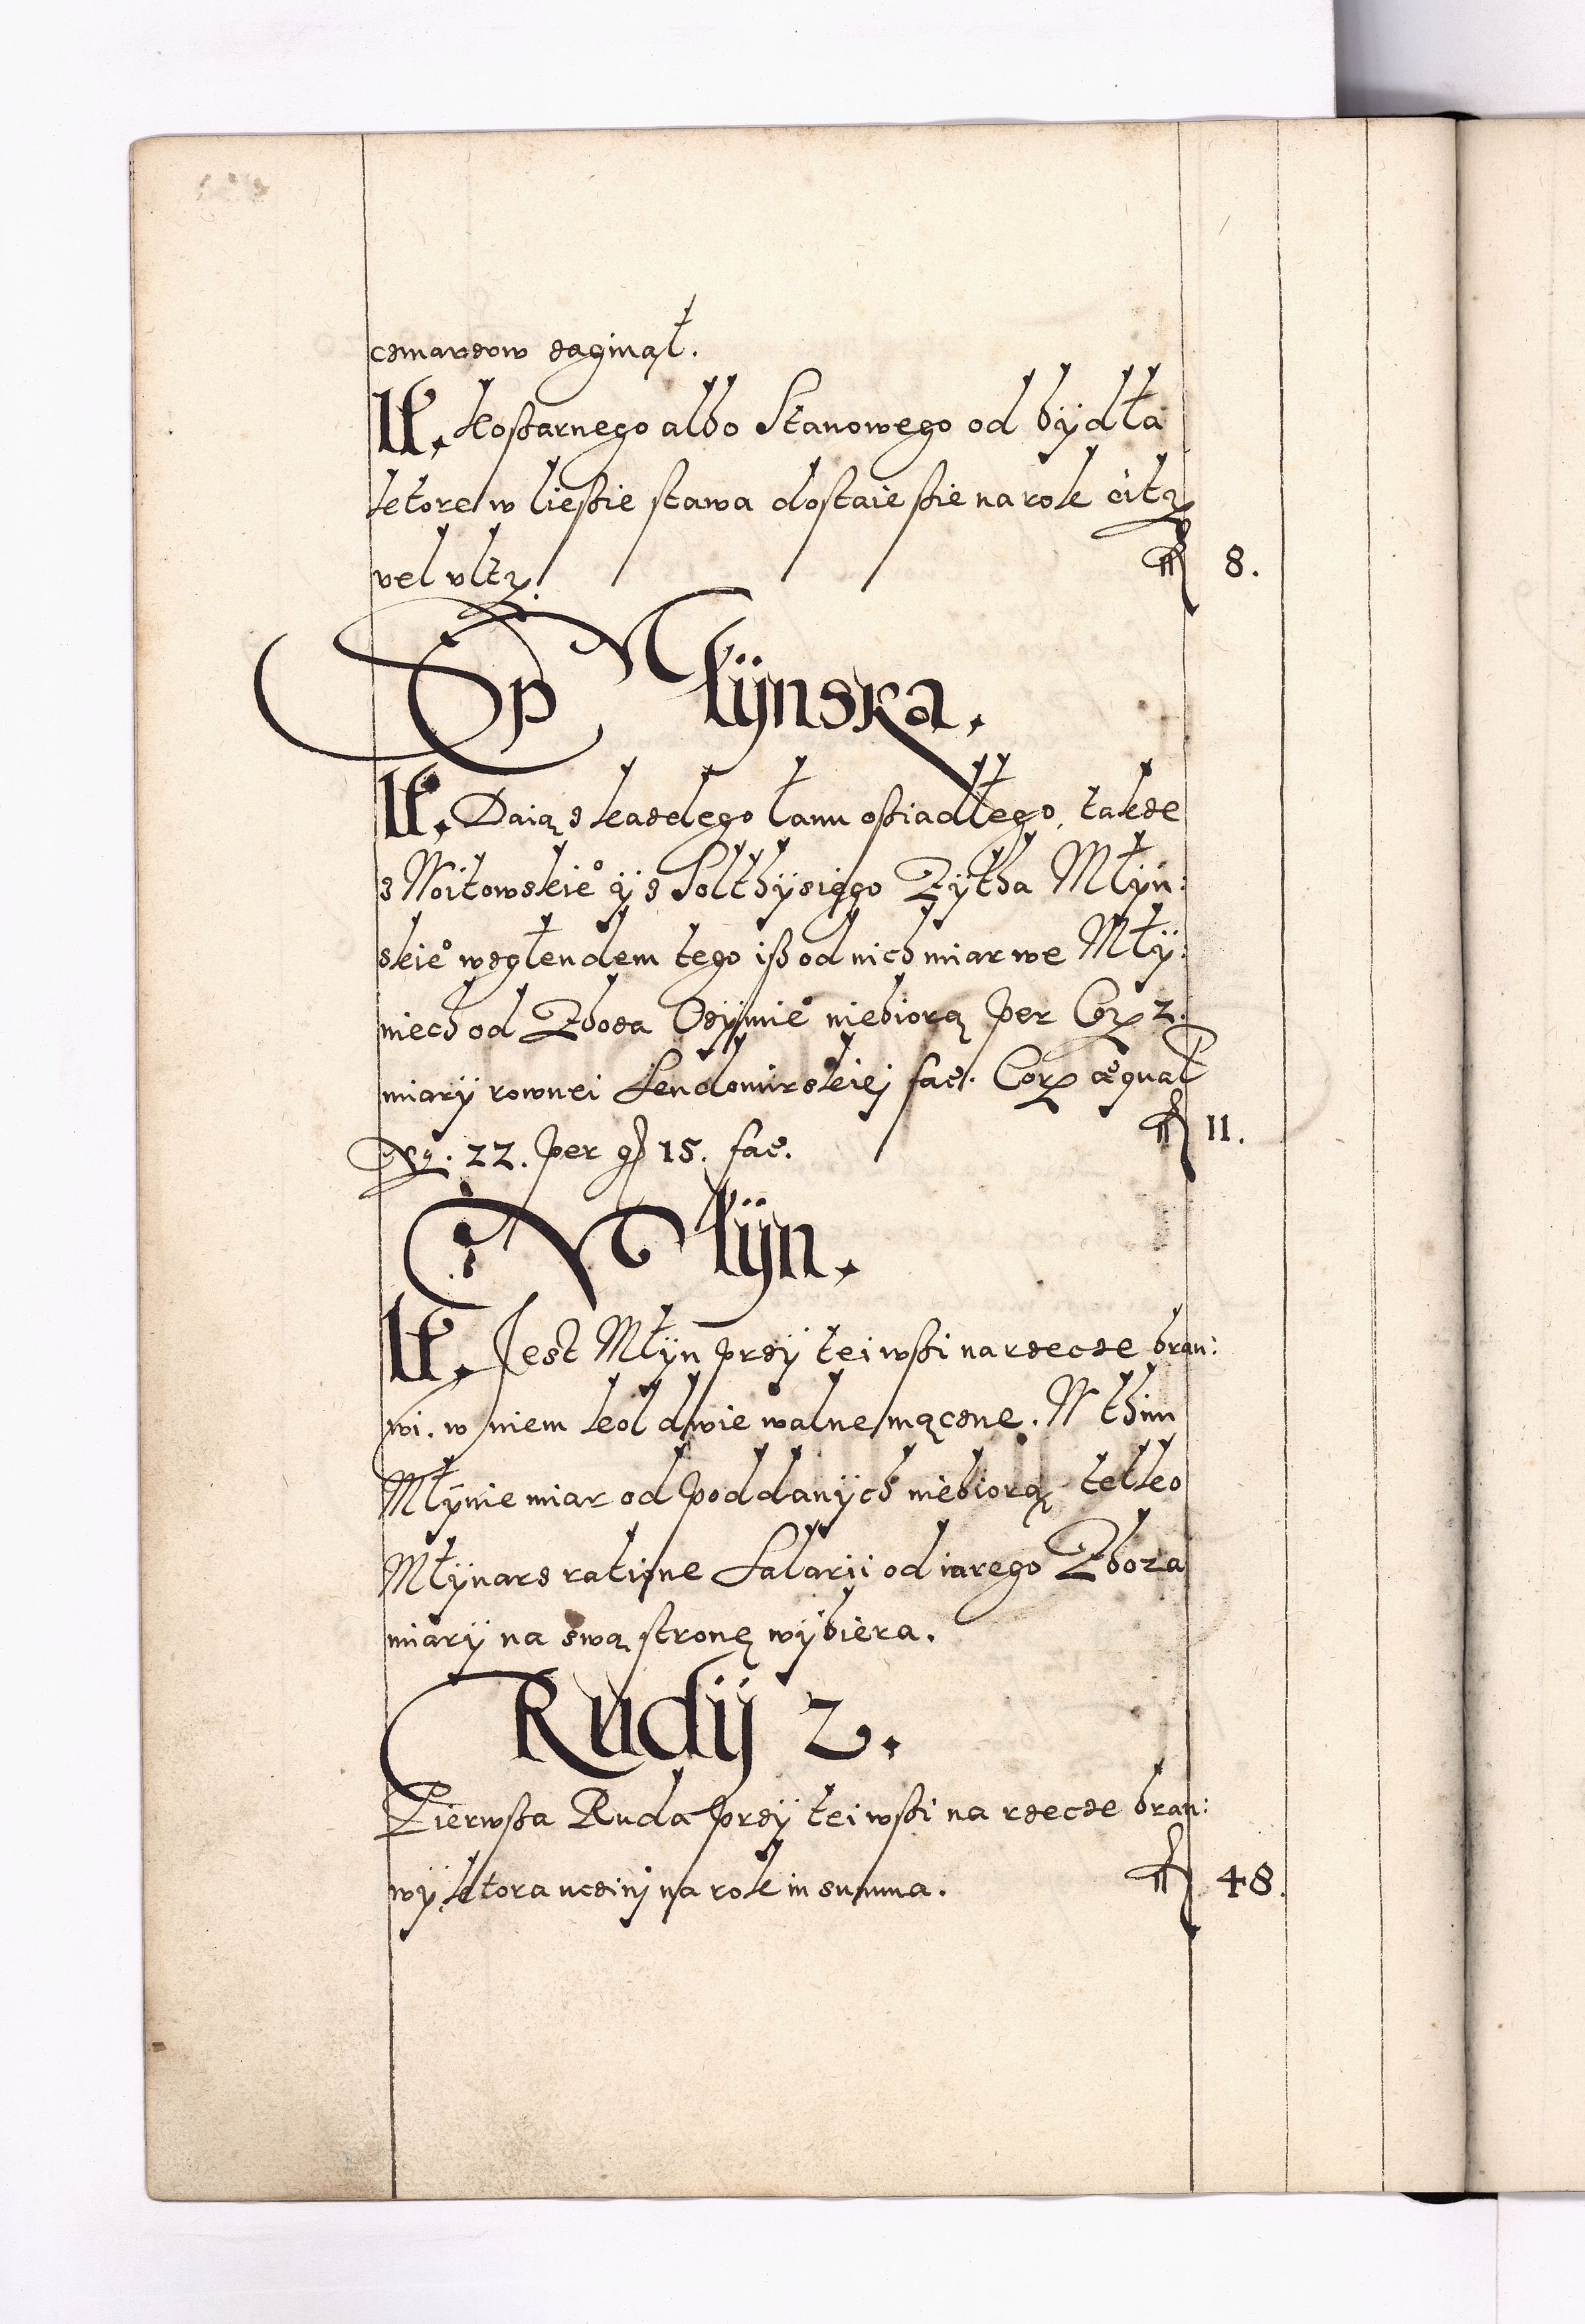 czmarzow zaginął.
It. koszarnego albo Stanowego od bydła
które w ließie stawa dostaie ßie na rok citr
vel ultr. ff 8.
Sp Młÿnska.
It. Daią z kazdego łanu oßiadłego, takze
z Woitowskie° ÿ z Solthÿsięgo Zÿtha Młÿn:
skie° wzglendem tego iß od nich miar we Mły:
niech od Zboza Ozÿmie° niebiorą per Cor 2.
miarÿ rownei Sendomirskiej fac. Cor æqual
22. per g 15. fac. ff 11.
Młÿn.
It. Jest Młÿn przÿ tei wßi na rzecze bran:
wi. w niem kol dwie walne mączne. W thim
Młÿnie miar od poddanÿch niebiorą telko
Młÿnarz ratione Salarii od iarego Zboza
miarÿ na swą stronę wÿbiera.
Rudÿ 2.
Pierwßa Ruda przÿ tei wßi na rzecze bran:
wÿ która uczini na rok in summa. ff 48.